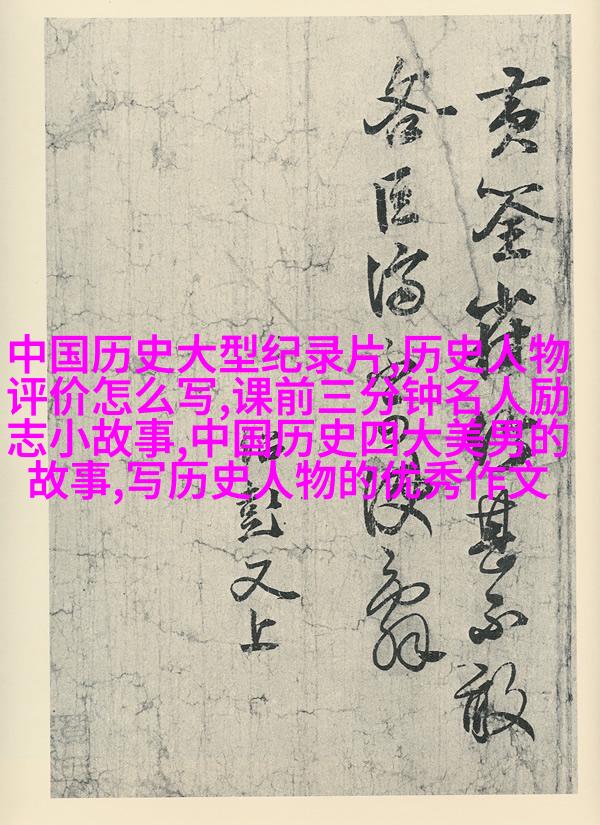 中国历史大型纪录片,历史人物
评价怎么写,课前三分钟名人励
志小故事,中国历史四大美男的
故事,写历史人物的优秀作文
黄筌甚不敢
臣
又上